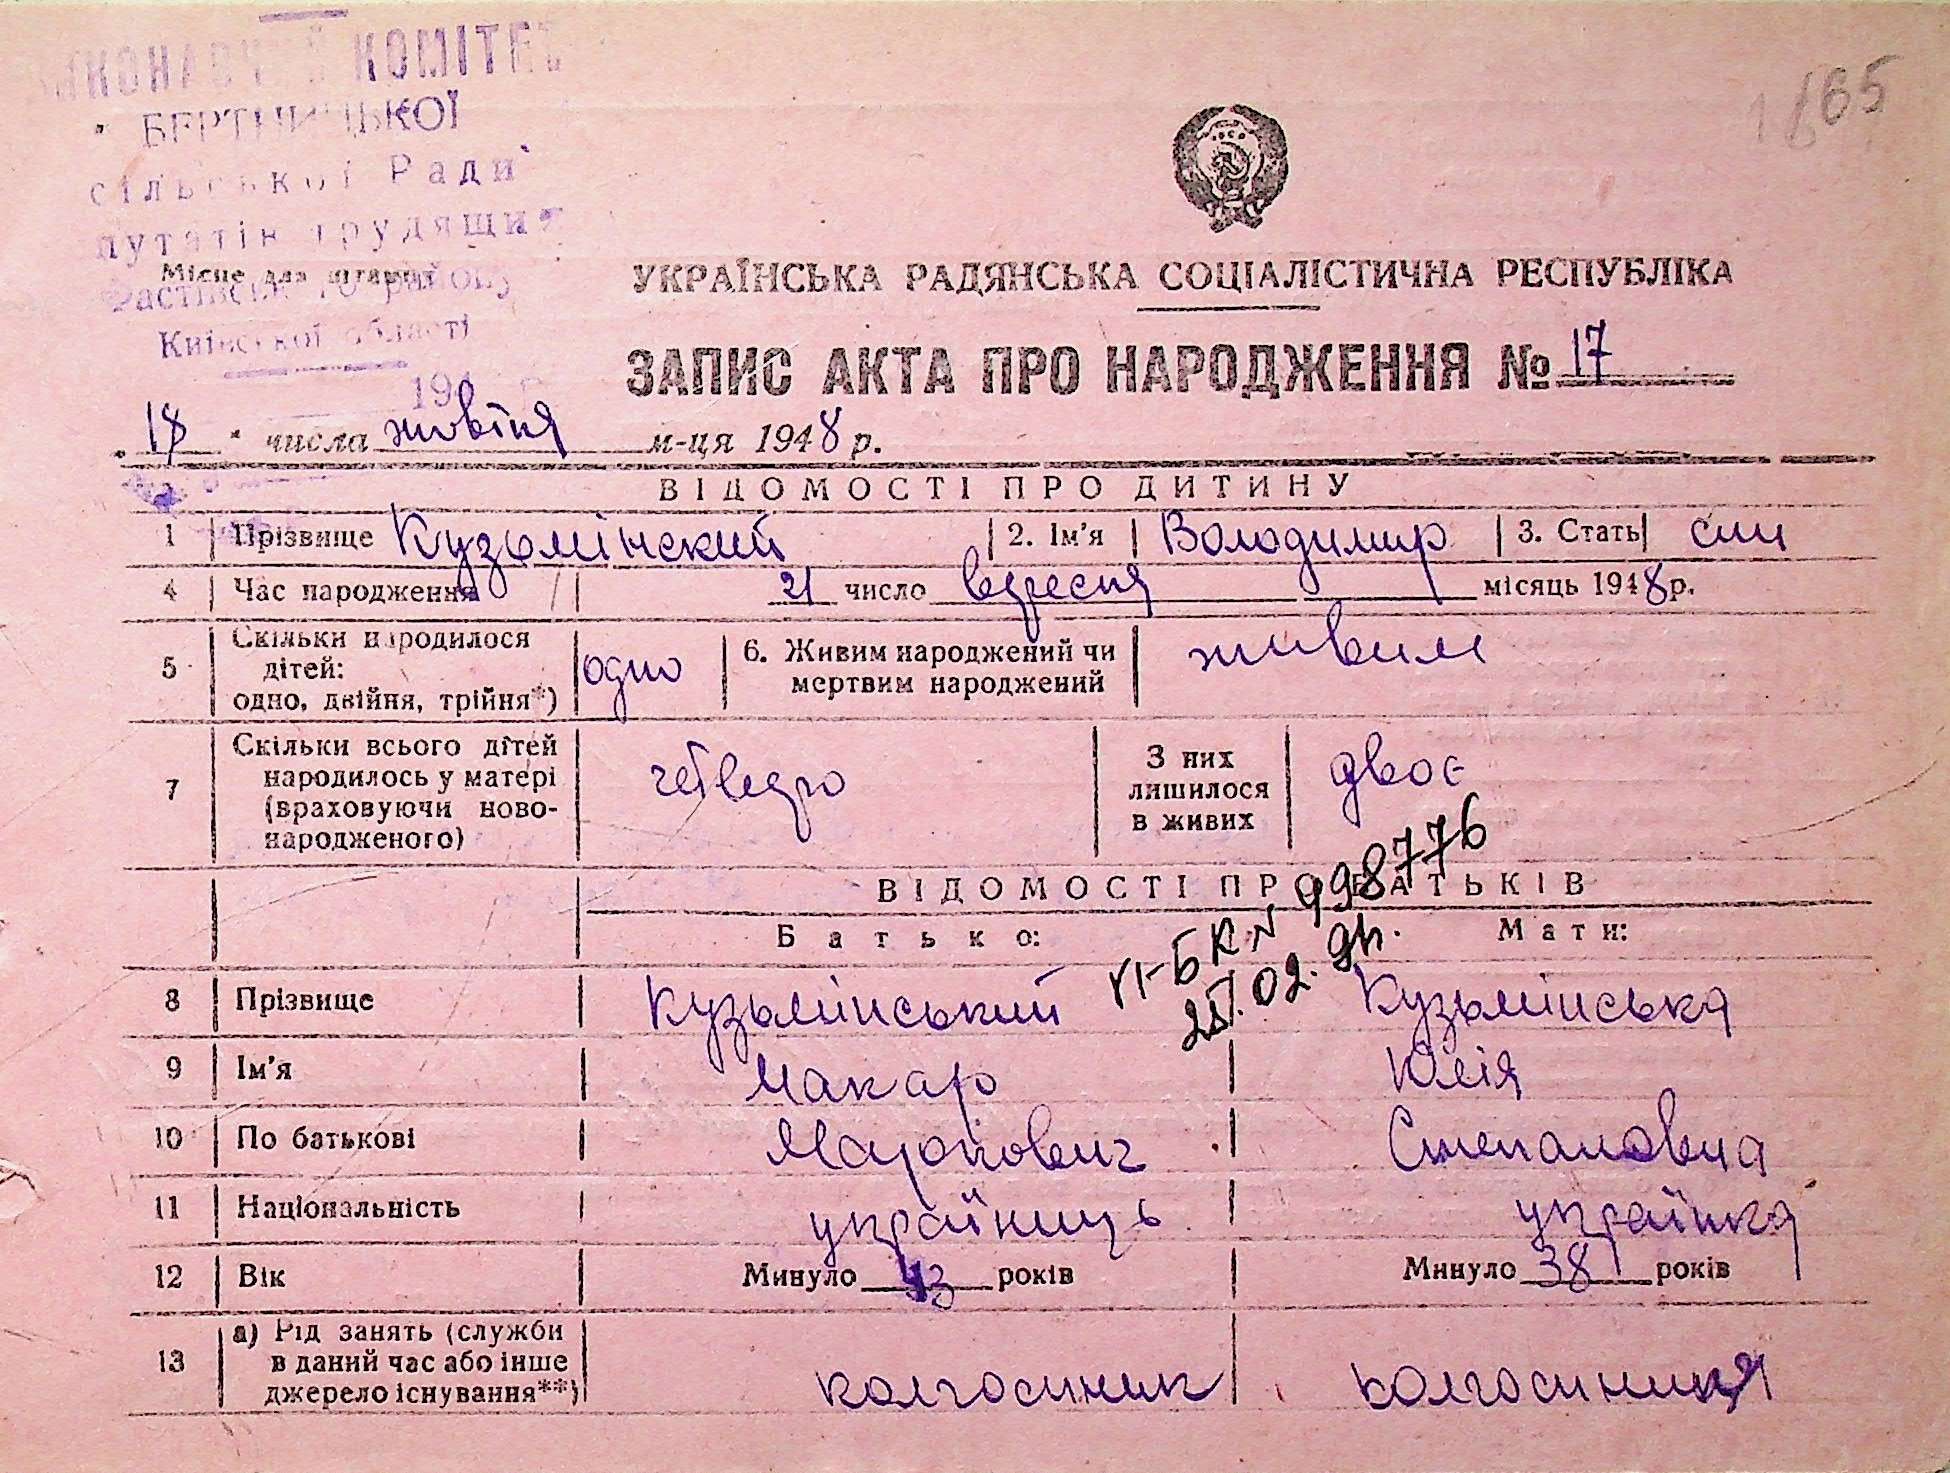 КОМІТЕ
сільської Ради
путатів трудящих
Місце для штампа
Фастівськ го району
Київської області
194
165
УКРАЇНСЬКА РАДЯНСЬКА СОЦІАЛІСТИЧНА РЕСПУБЛІКА
ЗАПИС АКТА ПРО НАРОДЖЕННЯ № 17
"18" числа жовтня м-ця 1948 р.
ВІДОМОСТІ ПРО ДИТИНУ
1 Прізвище Кузьмінский 2. Ім'я Володимир 3. Стать син
4 Час народження 21 число вересня місяць 1948 р.
5 Скільки народилося дітей: одно, двійня, трійня*) одно 6. Живим народжений чи мертвим народжений живим
7 Скільки всього дітей народилось у матері (враховуючи новонародженого) четверо З них лишилося в живих двоє
ВІДОМОСТІ ПРО БАТЬКІВ
Батько: Мати:
VI-БК N 998776
25.02.94.
8 Прізвище Кузьмінський Кузьмінська
9 Ім'я Макар Юлія
10 По батькові Маркович Степановна
11 Національність українць українка
12 Вік Минуло 43 років Минуло 38 років
13 а) Рід занять (служби в даний час або інше джерело існування**) колгосиник колгосиниця